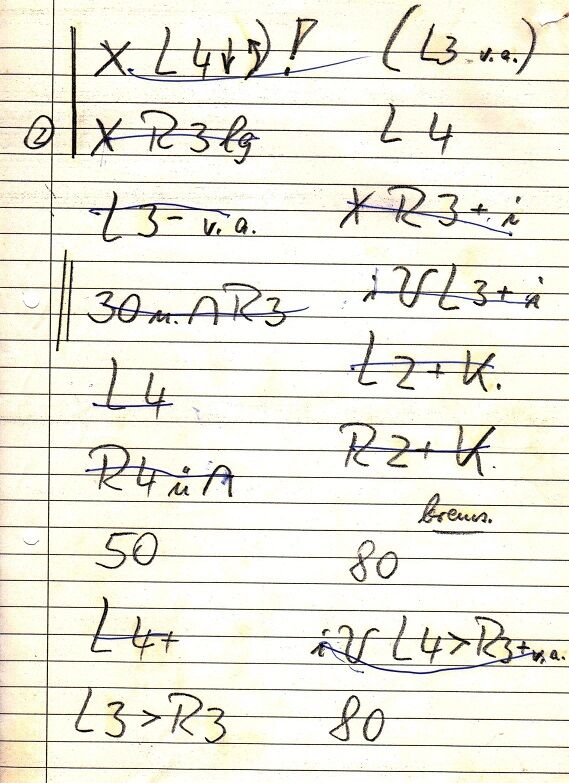 X L4 ↓ ↷ ! (L3 v.a.)
② X R3 lg L4
L3- v.a. X R3+ i
30 m. ∩ R3 i V L3+ i
L4 L2+K.
R4 ü ∩ R2+K.
brems.
50 80
L4+ i V L4>R3+v.a.
L3>R3 80